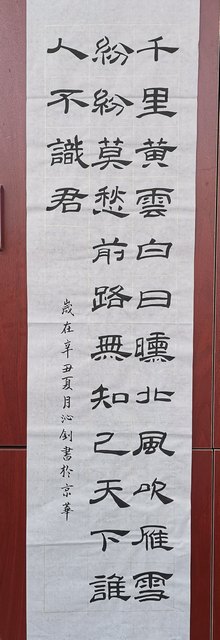 千里黃雲白日曛北風吹雁雪
紛紛莫愁前路無知己天下誰
人不識君
歲在辛丑夏月沁釗書於京華